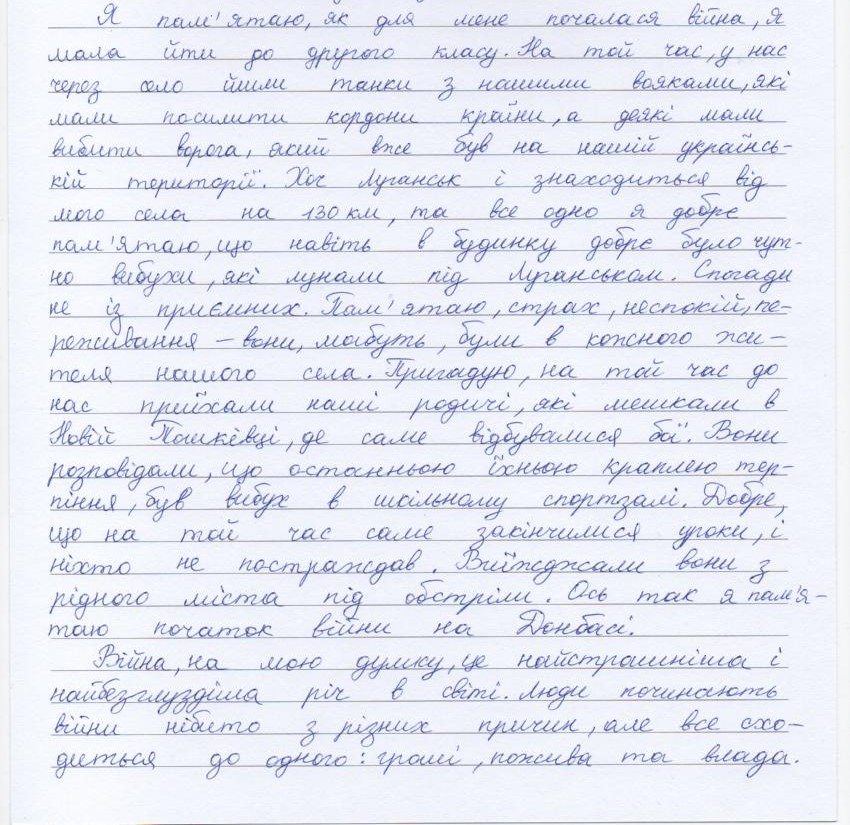 Я пам'ятаю, як для мене почалася війна, я
мала йти до другого класу. На той час, у нас
через село йшли танки з нашими вояками, які
мали посилити кордони країни, а деякі мали
вибити ворога, який вже був на нашій українсь-
кій території. Хоч Луганськ і знаходиться від
мого села на 130 км, та все одно я добре
пам'ятаю, що навіть в будинку добре було чут-
но вибухи, які лунали під Луганськом. Спогади
не із приємних. Пам'ятаю, страх, неспокій, пе-
реживання – вони, мабуть, були в кожного жи-
теля нашого села. Пригадую, на той час до
нас приїхали наші родичі, які мешкали в
Новій Ташківці, де саме відбувалися бої. Вони
розповідали, що останньою їхньою краплею тер-
піння, був вибух в шкільному спортзалі. Добре,
що на той час саме закінчилися уроки, і
ніхто не постраждав. Виїжджали вони з
рідного міста під обстріли. Ось так я пам'я-
таю початок війни на Донбасі.
Війна, на мою думку, це найстрашніша і
найбезглуздіша річ в світі. Люди починають
війни нібито з різних причин, але все схо-
диться до одного: гроші, пожива та влада.